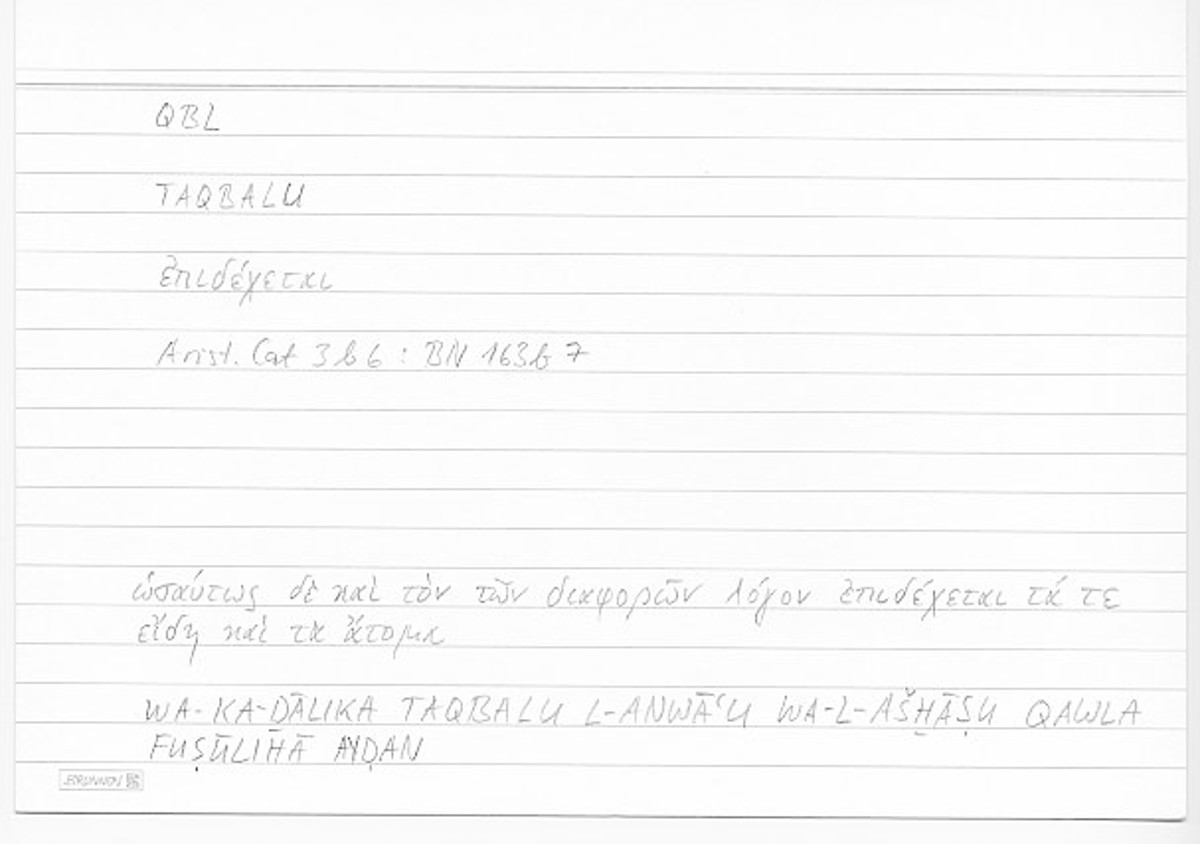 QBL
TAQBALU
ἐπιδέχεται
Arist. Cat 3 b 6 : BN 163b 7
ὡσαύτως δὲ καὶ τὸν τῶν διαφορῶν λόγον ἐπιδέχεται τά τε
εἴδη καὶ τὰ ἄτομα
WA-KA-ḎĀLIKA TAQBALU L-ANWĀʿU WA-L-AŠḪĀṢU QAWLA
FUṢŪLIHĀ AYḌAN